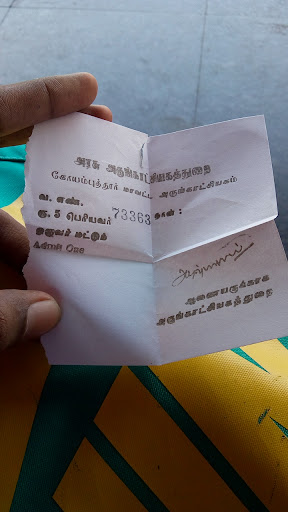 அரசு அருங்காட்சியகத்துறை
கோயம்புத்தூர் மாவட்ட அருங்காட்சியகம்
வ. எண். 73363 நாள் :
ரூ. 5 பெரியவர்
ஒருவர் மட்டும்
Adult One
ஆணையருக்காக
அருங்காட்சியகத்துறை